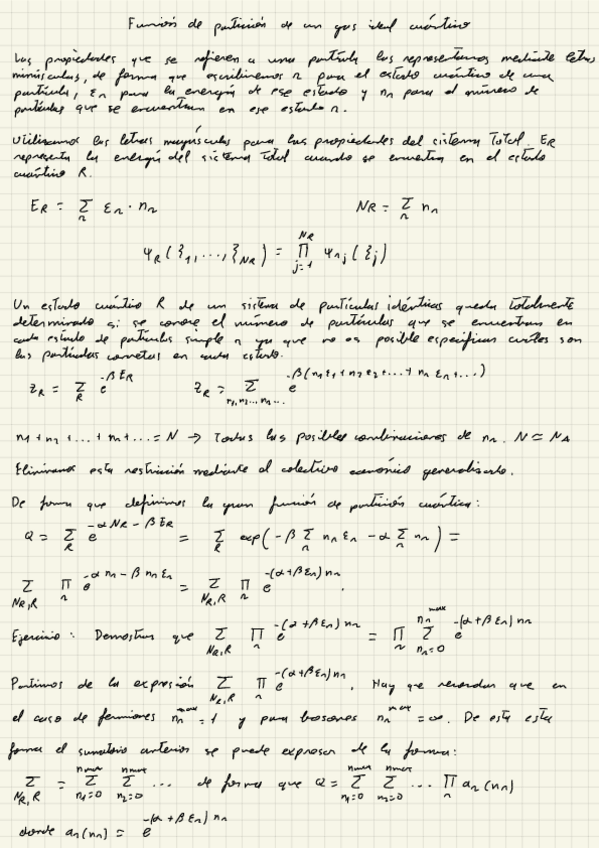 Función de partición de un gas ideal cuántico
Las propiedades que se refieren a una partícula las representamos mediante letras
minúsculas, de forma que escribiremos r para el estado cuántico de una
partícula, εr para la energía de ese estado y nr para el número de
partículas que se encuentran en ese estado r.
Utilizamos las letras mayúsculas para las propiedades del sistema Total. ER
representa la energía del sistema total cuando se encuentra en el estado
cuántico R.
ER = Σr εr · nr NR = Σr nr
ΨR(ξ1, ..., ξNR) = ∏_{j=1}^{NR} Ψrj(ξj)
Un estado cuántico R de un sistema de partículas idénticas queda totalmente
determinado si se conoce el número de partículas que se encuentran en
cada estado de partícula simple r ya que no es posible especificar cuáles son
las partículas concretas en cada estado.
ZR = Σ_R e^{-βER} ZR = Σ_{n1,n2...nr...} e^{-β(n1ε1+n2ε2+...+nrεr+...)}
n1+n2+...+nr+... = N → Todas las posibles combinaciones de nr. N ≃ NA
Eliminamos esta restricción mediante el colectivo canónico generalizado.
De forma que definimos la gran función de partición cuántica:
Q = Σ_R e^{-αNR-βER} = Σ_R exp(-β Σ_r nr εr - α Σ_r nr) =
Σ_{NR,R} ∏_r e^{-αnr-βnrεr} = Σ_{NR,R} ∏_r e^{-(α+βεr)nr}.
Ejercicio: Demostrar que Σ_{NR,R} ∏_r e^{-(α+βεr)nr} = ∏_r Σ_{nr=0}^{nr^{max}} e^{-(α+βεr)nr}
Partimos de la expresión Σ_{NR,R} ∏_r e^{-(α+βεr)nr}. Hay que recordar que en
el caso de fermiones nr^{max} = 1 y para bosones nr^{max} = ∞. De esta esta
forma el sumatorio anterior se puede expresar de la forma:
Σ_{NR,R} = Σ_{n1=0}^{nmax} Σ_{n2=0}^{nmax} ... de forma que Q = Σ_{n1=0}^{nmax} Σ_{n2=0}^{nmax} ... ∏_r ar(nr)
donde ar(nr) = e^{-(α+βεr)nr}